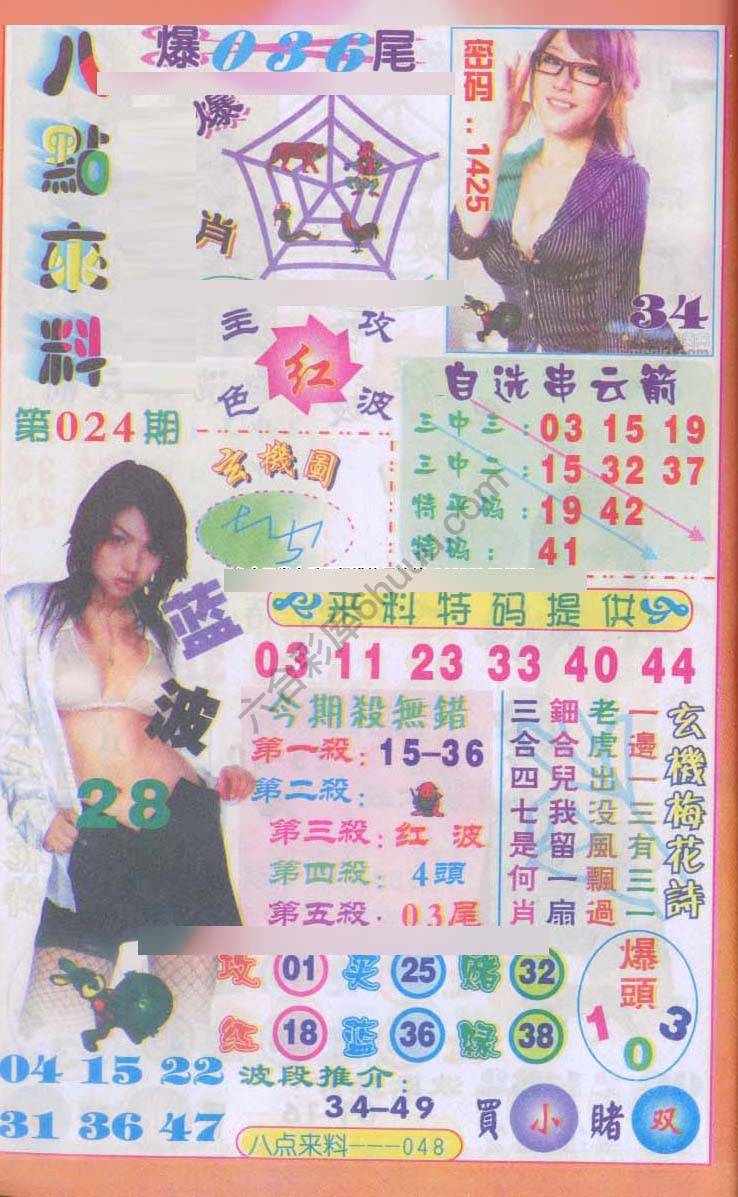 八點來料
爆036尾
爆肖
密码..1425
34
主攻
红
色波
第024期
玄機圖
自选串云箭
三中三：03 15 19
三中二：15 32 37
特平码：19 42
特码：41
蓝波
28
来料特码提供
03 11 23 33 40 44
今期殺無錯
第一殺：15-36
第二殺：
第三殺：红波
第四殺：4頭
第五殺：03尾
玄機梅花詩
一邊一三有三一
老虎出没風飄過
鈿合兒我留一扇
三合四七是何肖
攻 01 买 25 赌 32
红 18 蓝 36 绿 38
爆頭
1 0 3
04 15 22
31 36 47
波段推介：
34-49
買小赌双
八点来料---048
六合彩库6huuu.com